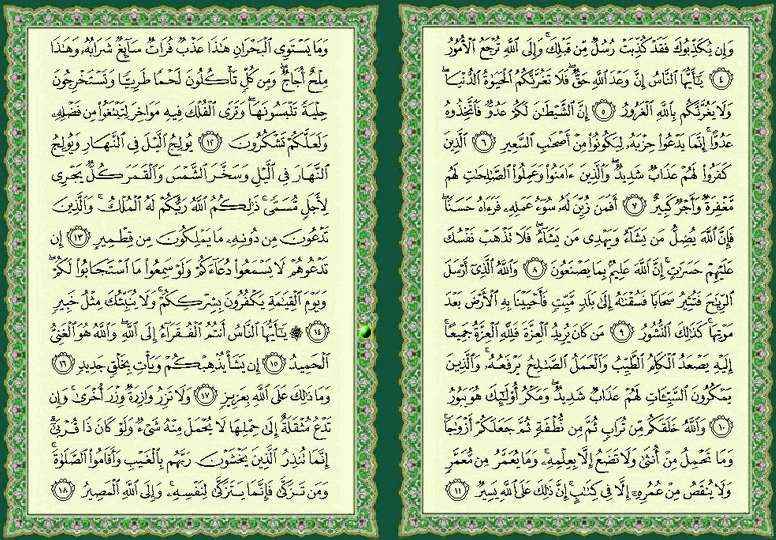 وَإِن يُكَذِّبُوكَ فَقَدْ كُذِّبَتْ رُسُلٌ مِّن قَبْلِكَ ۚ وَإِلَى ٱللَّهِ تُرْجَعُ ٱلْأُمُورُ
﴿٤﴾ يَـٰٓأَيُّهَا ٱلنَّاسُ إِنَّ وَعْدَ ٱللَّهِ حَقٌّ ۖ فَلَا تَغُرَّنَّكُمُ ٱلْحَيَوٰةُ ٱلدُّنْيَا ۖ
وَلَا يَغُرَّنَّكُم بِٱللَّهِ ٱلْغَرُورُ ﴿٥﴾ إِنَّ ٱلشَّيْطَـٰنَ لَكُمْ عَدُوٌّ فَٱتَّخِذُوهُ
عَدُوًّا ۚ إِنَّمَا يَدْعُوا۟ حِزْبَهُۥ لِيَكُونُوا۟ مِنْ أَصْحَـٰبِ ٱلسَّعِيرِ ﴿٦﴾ ٱلَّذِينَ
كَفَرُوا۟ لَهُمْ عَذَابٌ شَدِيدٌ ۖ وَٱلَّذِينَ ءَامَنُوا۟ وَعَمِلُوا۟ ٱلصَّـٰلِحَـٰتِ لَهُم
مَّغْفِرَةٌ وَأَجْرٌ كَبِيرٌ ﴿٧﴾ أَفَمَن زُيِّنَ لَهُۥ سُوٓءُ عَمَلِهِۦ فَرَءَاهُ حَسَنًا ۖ
فَإِنَّ ٱللَّهَ يُضِلُّ مَن يَشَآءُ وَيَهْدِى مَن يَشَآءُ ۖ فَلَا تَذْهَبْ نَفْسُكَ
عَلَيْهِمْ حَسَرَٰتٍ ۚ إِنَّ ٱللَّهَ عَلِيمٌۢ بِمَا يَصْنَعُونَ ﴿٨﴾ وَٱللَّهُ ٱلَّذِىٓ أَرْسَلَ
ٱلرِّيَـٰحَ فَتُثِيرُ سَحَابًا فَسُقْنَـٰهُ إِلَىٰ بَلَدٍ مَّيِّتٍ فَأَحْيَيْنَا بِهِ ٱلْأَرْضَ بَعْدَ
مَوْتِهَا ۚ كَذَٰلِكَ ٱلنُّشُورُ ﴿٩﴾ مَن كَانَ يُرِيدُ ٱلْعِزَّةَ فَلِلَّهِ ٱلْعِزَّةُ جَمِيعًا ۚ
إِلَيْهِ يَصْعَدُ ٱلْكَلِمُ ٱلطَّيِّبُ وَٱلْعَمَلُ ٱلصَّـٰلِحُ يَرْفَعُهُۥ ۚ وَٱلَّذِينَ
يَمْكُرُونَ ٱلسَّيِّـَٔاتِ لَهُمْ عَذَابٌ شَدِيدٌ ۖ وَمَكْرُ أُو۟لَـٰٓئِكَ هُوَ يَبُورُ
﴿١٠﴾ وَٱللَّهُ خَلَقَكُم مِّن تُرَابٍ ثُمَّ مِن نُّطْفَةٍ ثُمَّ جَعَلَكُمْ أَزْوَٰجًا ۚ
وَمَا تَحْمِلُ مِنْ أُنثَىٰ وَلَا تَضَعُ إِلَّا بِعِلْمِهِۦ ۚ وَمَا يُعَمَّرُ مِن مُّعَمَّرٍ
وَلَا يُنقَصُ مِنْ عُمُرِهِۦٓ إِلَّا فِى كِتَـٰبٍ ۚ إِنَّ ذَٰلِكَ عَلَى ٱللَّهِ يَسِيرٌ ﴿١١﴾
وَمَا يَسْتَوِى ٱلْبَحْرَانِ هَـٰذَا عَذْبٌ فُرَاتٌ سَآئِغٌ شَرَابُهُۥ وَهَـٰذَا
مِلْحٌ أُجَاجٌ ۖ وَمِن كُلٍّ تَأْكُلُونَ لَحْمًا طَرِيًّا وَتَسْتَخْرِجُونَ
حِلْيَةً تَلْبَسُونَهَا ۖ وَتَرَى ٱلْفُلْكَ فِيهِ مَوَاخِرَ لِتَبْتَغُوا۟ مِن فَضْلِهِۦ
وَلَعَلَّكُمْ تَشْكُرُونَ ﴿١٢﴾ يُولِجُ ٱلَّيْلَ فِى ٱلنَّهَارِ وَيُولِجُ
ٱلنَّهَارَ فِى ٱلَّيْلِ وَسَخَّرَ ٱلشَّمْسَ وَٱلْقَمَرَ كُلٌّ يَجْرِى
لِأَجَلٍ مُّسَمًّى ۚ ذَٰلِكُمُ ٱللَّهُ رَبُّكُمْ لَهُ ٱلْمُلْكُ ۚ وَٱلَّذِينَ
تَدْعُونَ مِن دُونِهِۦ مَا يَمْلِكُونَ مِن قِطْمِيرٍ ﴿١٣﴾ إِن
تَدْعُوهُمْ لَا يَسْمَعُوا۟ دُعَآءَكُمْ وَلَوْ سَمِعُوا۟ مَا ٱسْتَجَابُوا۟ لَكُمْ ۖ
وَيَوْمَ ٱلْقِيَـٰمَةِ يَكْفُرُونَ بِشِرْكِكُمْ ۚ وَلَا يُنَبِّئُكَ مِثْلُ خَبِيرٍ
﴿١٤﴾ ۞ يَـٰٓأَيُّهَا ٱلنَّاسُ أَنتُمُ ٱلْفُقَرَآءُ إِلَى ٱللَّهِ ۖ وَٱللَّهُ هُوَ ٱلْغَنِىُّ
ٱلْحَمِيدُ ﴿١٥﴾ إِن يَشَأْ يُذْهِبْكُمْ وَيَأْتِ بِخَلْقٍ جَدِيدٍ ﴿١٦﴾
وَمَا ذَٰلِكَ عَلَى ٱللَّهِ بِعَزِيزٍ ﴿١٧﴾ وَلَا تَزِرُ وَازِرَةٌ وِزْرَ أُخْرَىٰ ۚ وَإِن
تَدْعُ مُثْقَلَةٌ إِلَىٰ حِمْلِهَا لَا يُحْمَلْ مِنْهُ شَىْءٌ وَلَوْ كَانَ ذَا قُرْبَىٰٓ ۗ
إِنَّمَا تُنذِرُ ٱلَّذِينَ يَخْشَوْنَ رَبَّهُم بِٱلْغَيْبِ وَأَقَامُوا۟ ٱلصَّلَوٰةَ ۚ
وَمَن تَزَكَّىٰ فَإِنَّمَا يَتَزَكَّىٰ لِنَفْسِهِۦ ۚ وَإِلَى ٱللَّهِ ٱلْمَصِيرُ ﴿١٨﴾